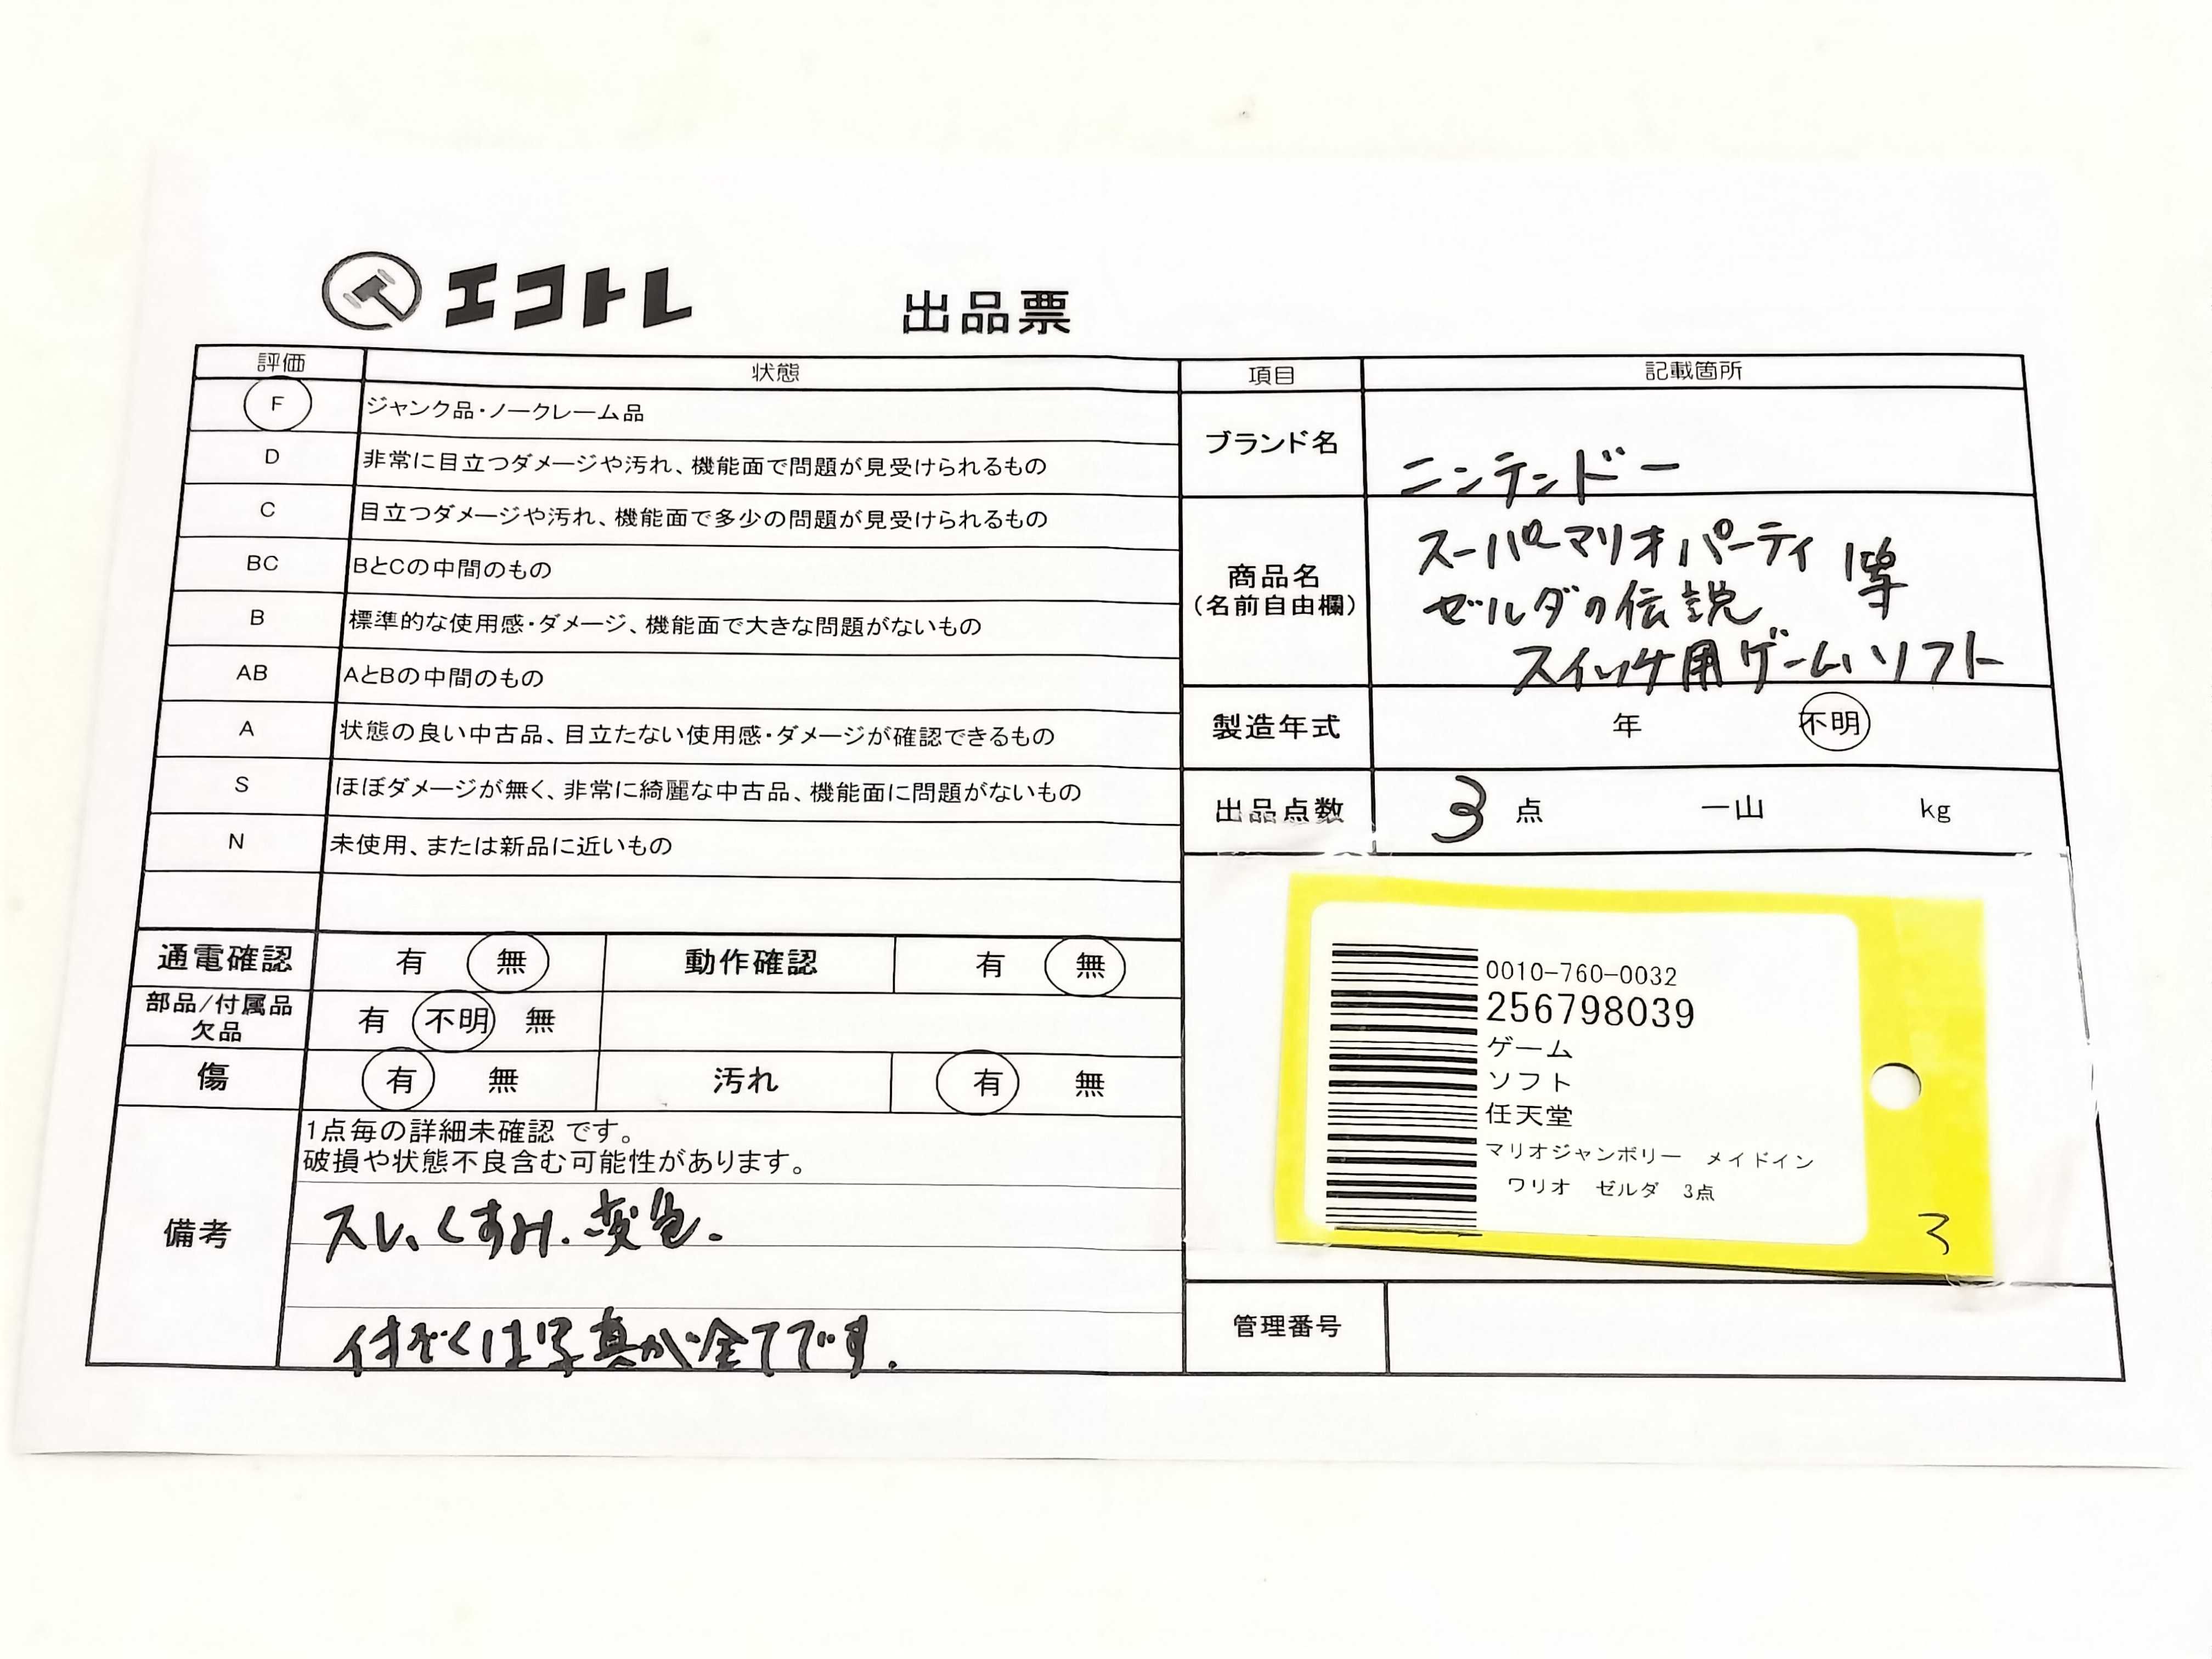 エコトレ
出品票
評価 状態
F ジャンク品・ノークレーム品
D 非常に目立つダメージや汚れ、機能面で問題が見受けられるもの
C 目立つダメージや汚れ、機能面で多少の問題が見受けられるもの
BC BとCの中間のもの
B 標準的な使用感・ダメージ、機能面で大きな問題がないもの
AB AとBの中間のもの
A 状態の良い中古品、目立たない使用感・ダメージが確認できるもの
S ほぼダメージが無く、非常に綺麗な中古品、機能面に問題がないもの
N 未使用、または新品に近いもの
通電確認 有 無 動作確認 有 無
部品/付属品
欠品
有 不明 無
傷 有 無 汚れ 有 無
備考
1点毎の詳細未確認 です。
破損や状態不良含む可能性があります。
スレ、くすみ、変色、
付ぞくは写真が全てです。
項目 記載箇所
ブランド名 ニンテンドー
商品名
(名前自由欄)
スーパーマリオパーティ 等
ゼルダの伝説
スイッチ用ゲームソフト
製造年式 年 不明
出品点数 3 点 一山 kg
0010-760-0032
256798039
ゲーム
ソフト
任天堂
マリオジャンボリー メイドイン
ワリオ ゼルダ 3点
3
管理番号